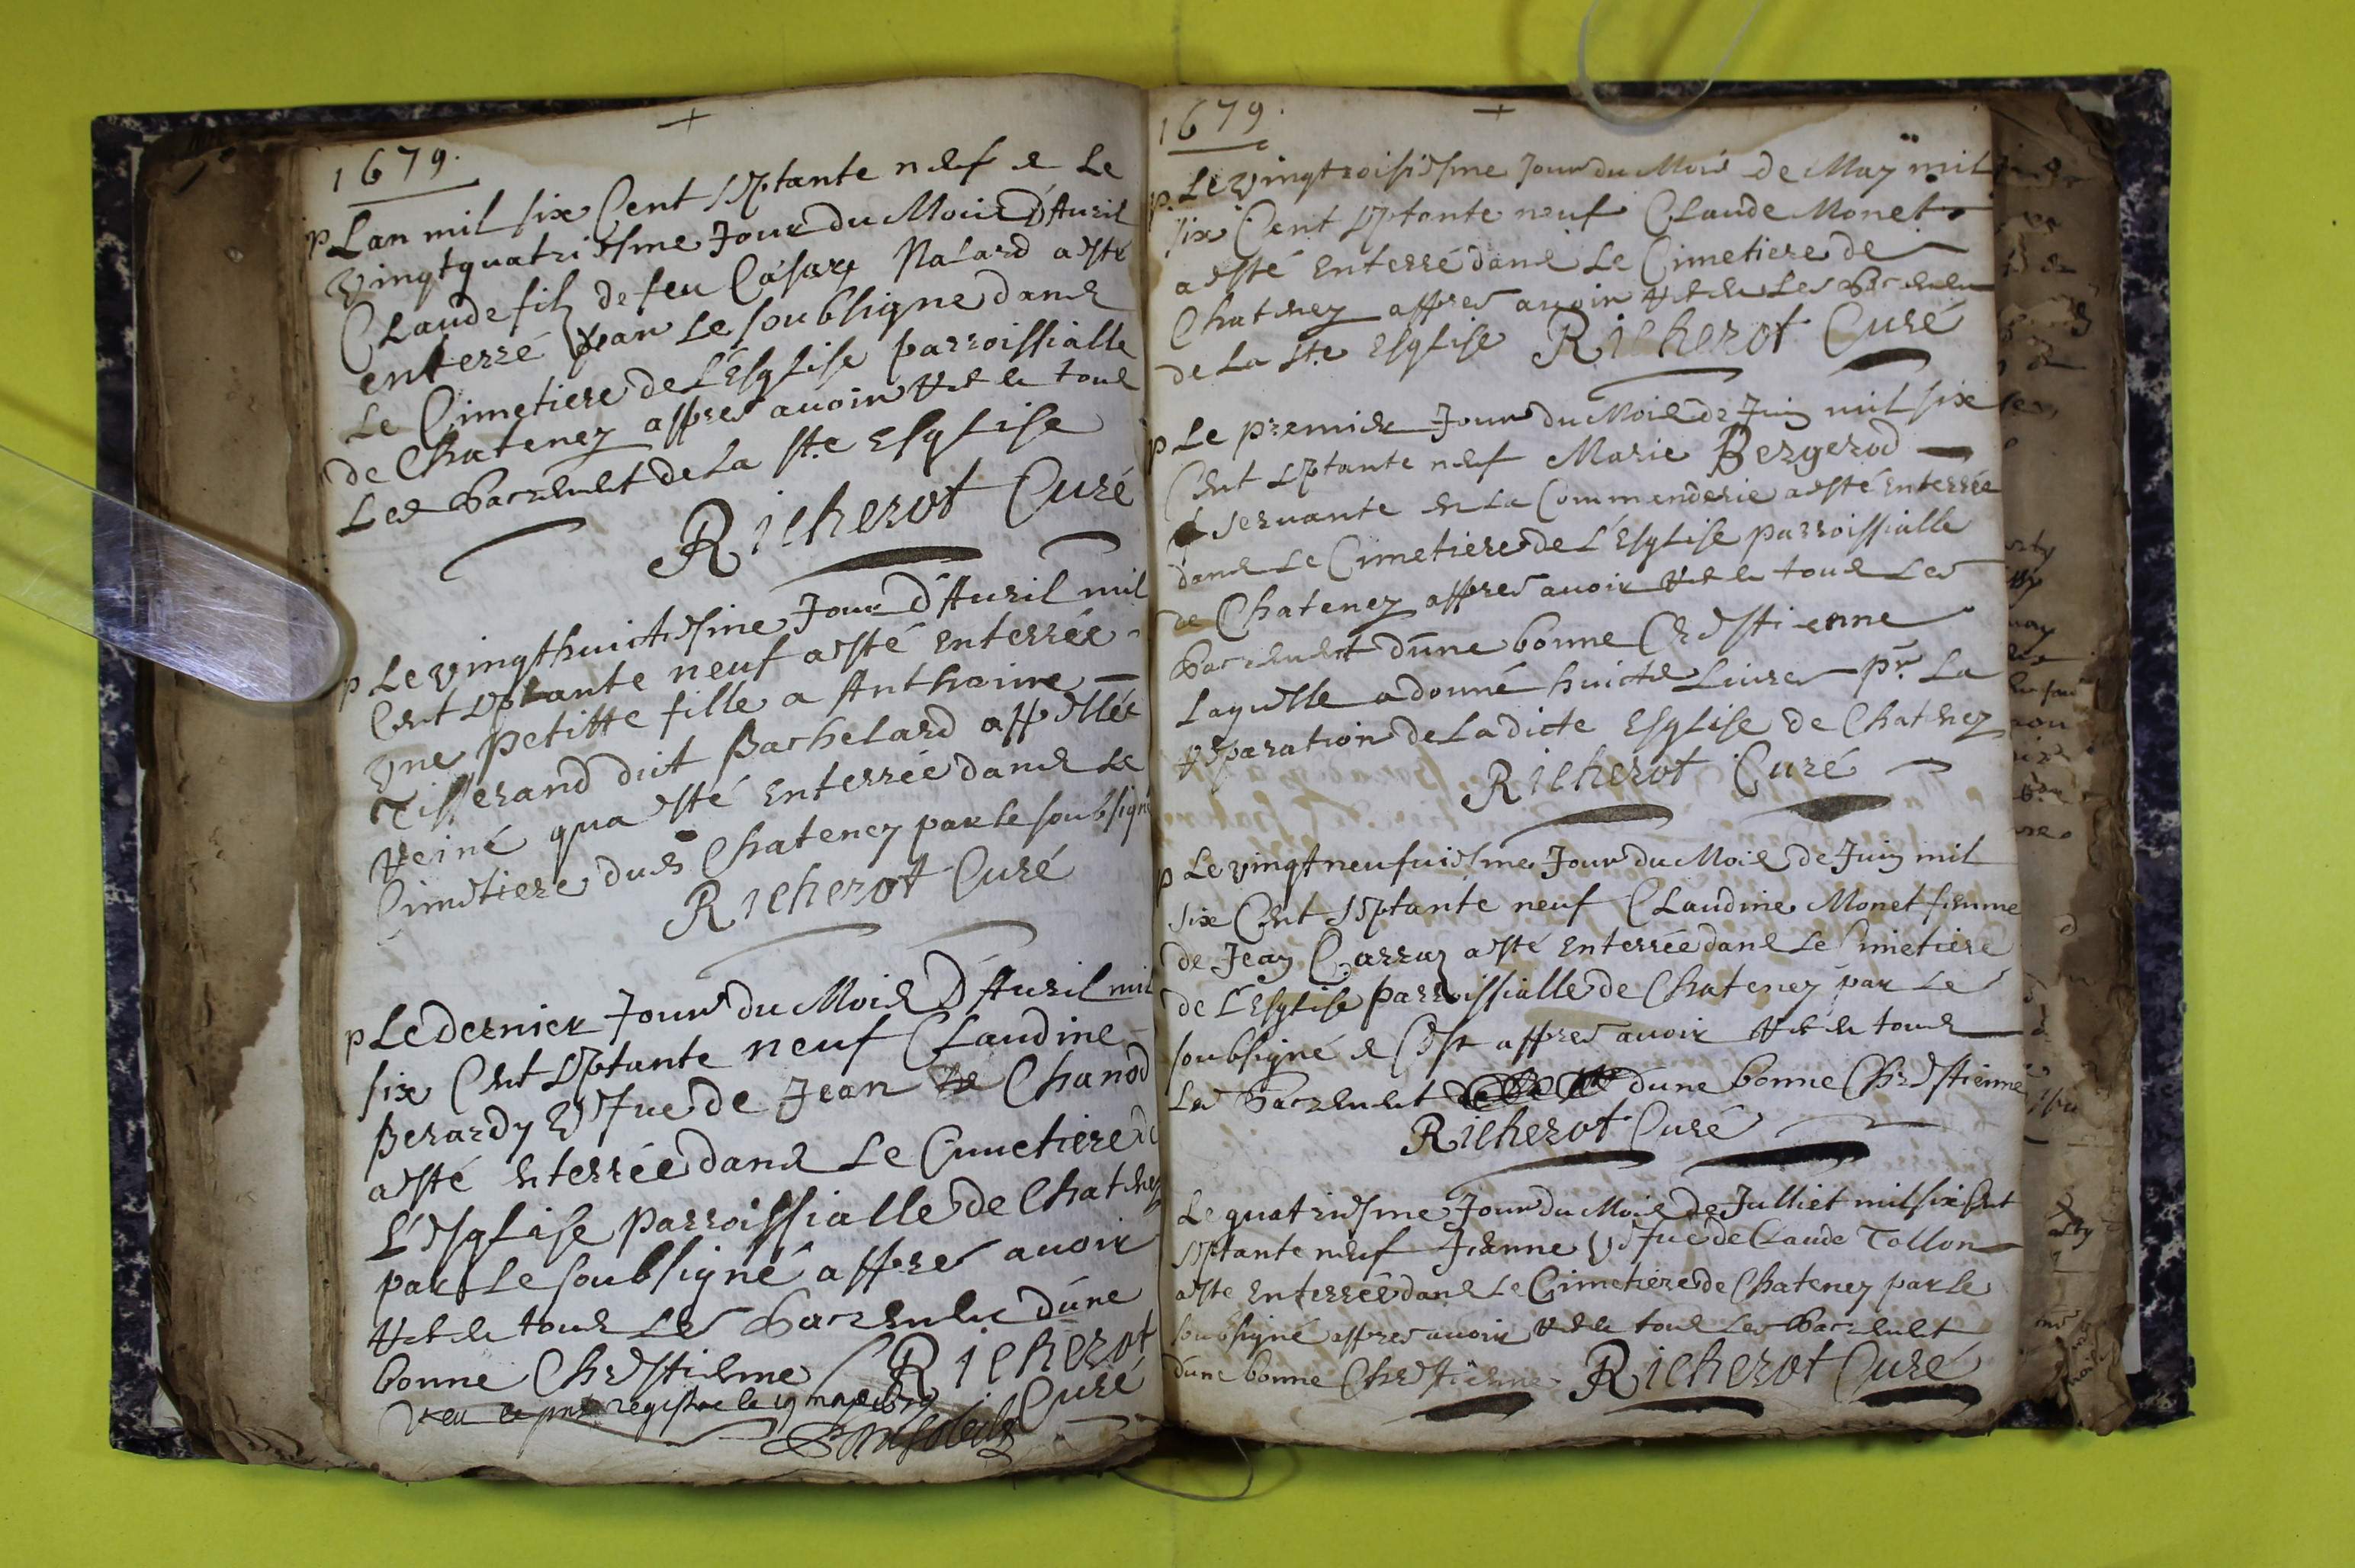 1679.
p Lan mil six Cent septante neuf & Le
vingtquatriesme Jour du Mois D'Auril
Claude filz de feu Cásarz Nalard a esté
enterré par Le soubsigne dans
Le Cimetiere de L'Esglise parroissialle
de Chatenez appres auoir receu tous
Les Sacrements de La ste Esglise
Richerot Curé
p Le vingthuictiesme Jour d'Auril mil
Cent septante neuf a esté Enterrée
vne petitte fille a Anthoine
Tisserand dit Bachelard appellée
qu a esté Enterrée dans Le
Cimetiere dud Chatenez par le soubsigné
Richerot Curé
p Le dernier Jour du Mois D'Auril mil
six Cent septante neuf Claudine
Berardy vesfue de Jean Chanod
a esté Enterrée dans Le Cimetiere de
L'Esglise Parroissialle de Chatenez
par Le soubsigné appres auoir
receu tous Les Sacrements dúne
bonne Chrestienne Richerot
Curé
veu le pnt registre le 19 may 1679
1679.
p. Le vingtroisiesme Jour du Mois de May mil
six Cent septante neuf Claude Monet
a esté Enterré dans Le Cimetiere de
Chatenez appres auoir receu Les Sacremens
de La ste Esglise Richerot Curé
p Le premier Jour du Mois de Juin mil six
Cent septante neuf Marie Bergerod
servante en La Commenderie a esté Enterrée
dans Le Cimetiere de L'Esglise parroissialle
de Chatenez appres auoir receu tous Les
Sacrement dúne bonne Chrestienne
Laquelle a donné huicte Liures pr. La
reparation de Ladicte Esglise de Chatenez
Richerot Curé
p Le vingtneufuiesme Jour du Mois de Juin mil
six Cent septante neuf Claudine Monet femme
de Jean Carraz a esté Enterrée dans Le Cimetiere
de L'Esglise parroissialle de Chatenez par Le
soubsigné & Cest appres auoir receu tous
Les Sacrement dune bonne Chrestienne
Richerot Curé
Le quatriesme Jour du Mois de Julliet mil six Cent
septante neuf Jeanne vesfue de Claude Tollon
a este Enterrée dans Le Cimetiere de Chatenez par le
soubsigné appres auoir receu tous Les Sacrement
dúne bonne Chrestienne Richerot Curé